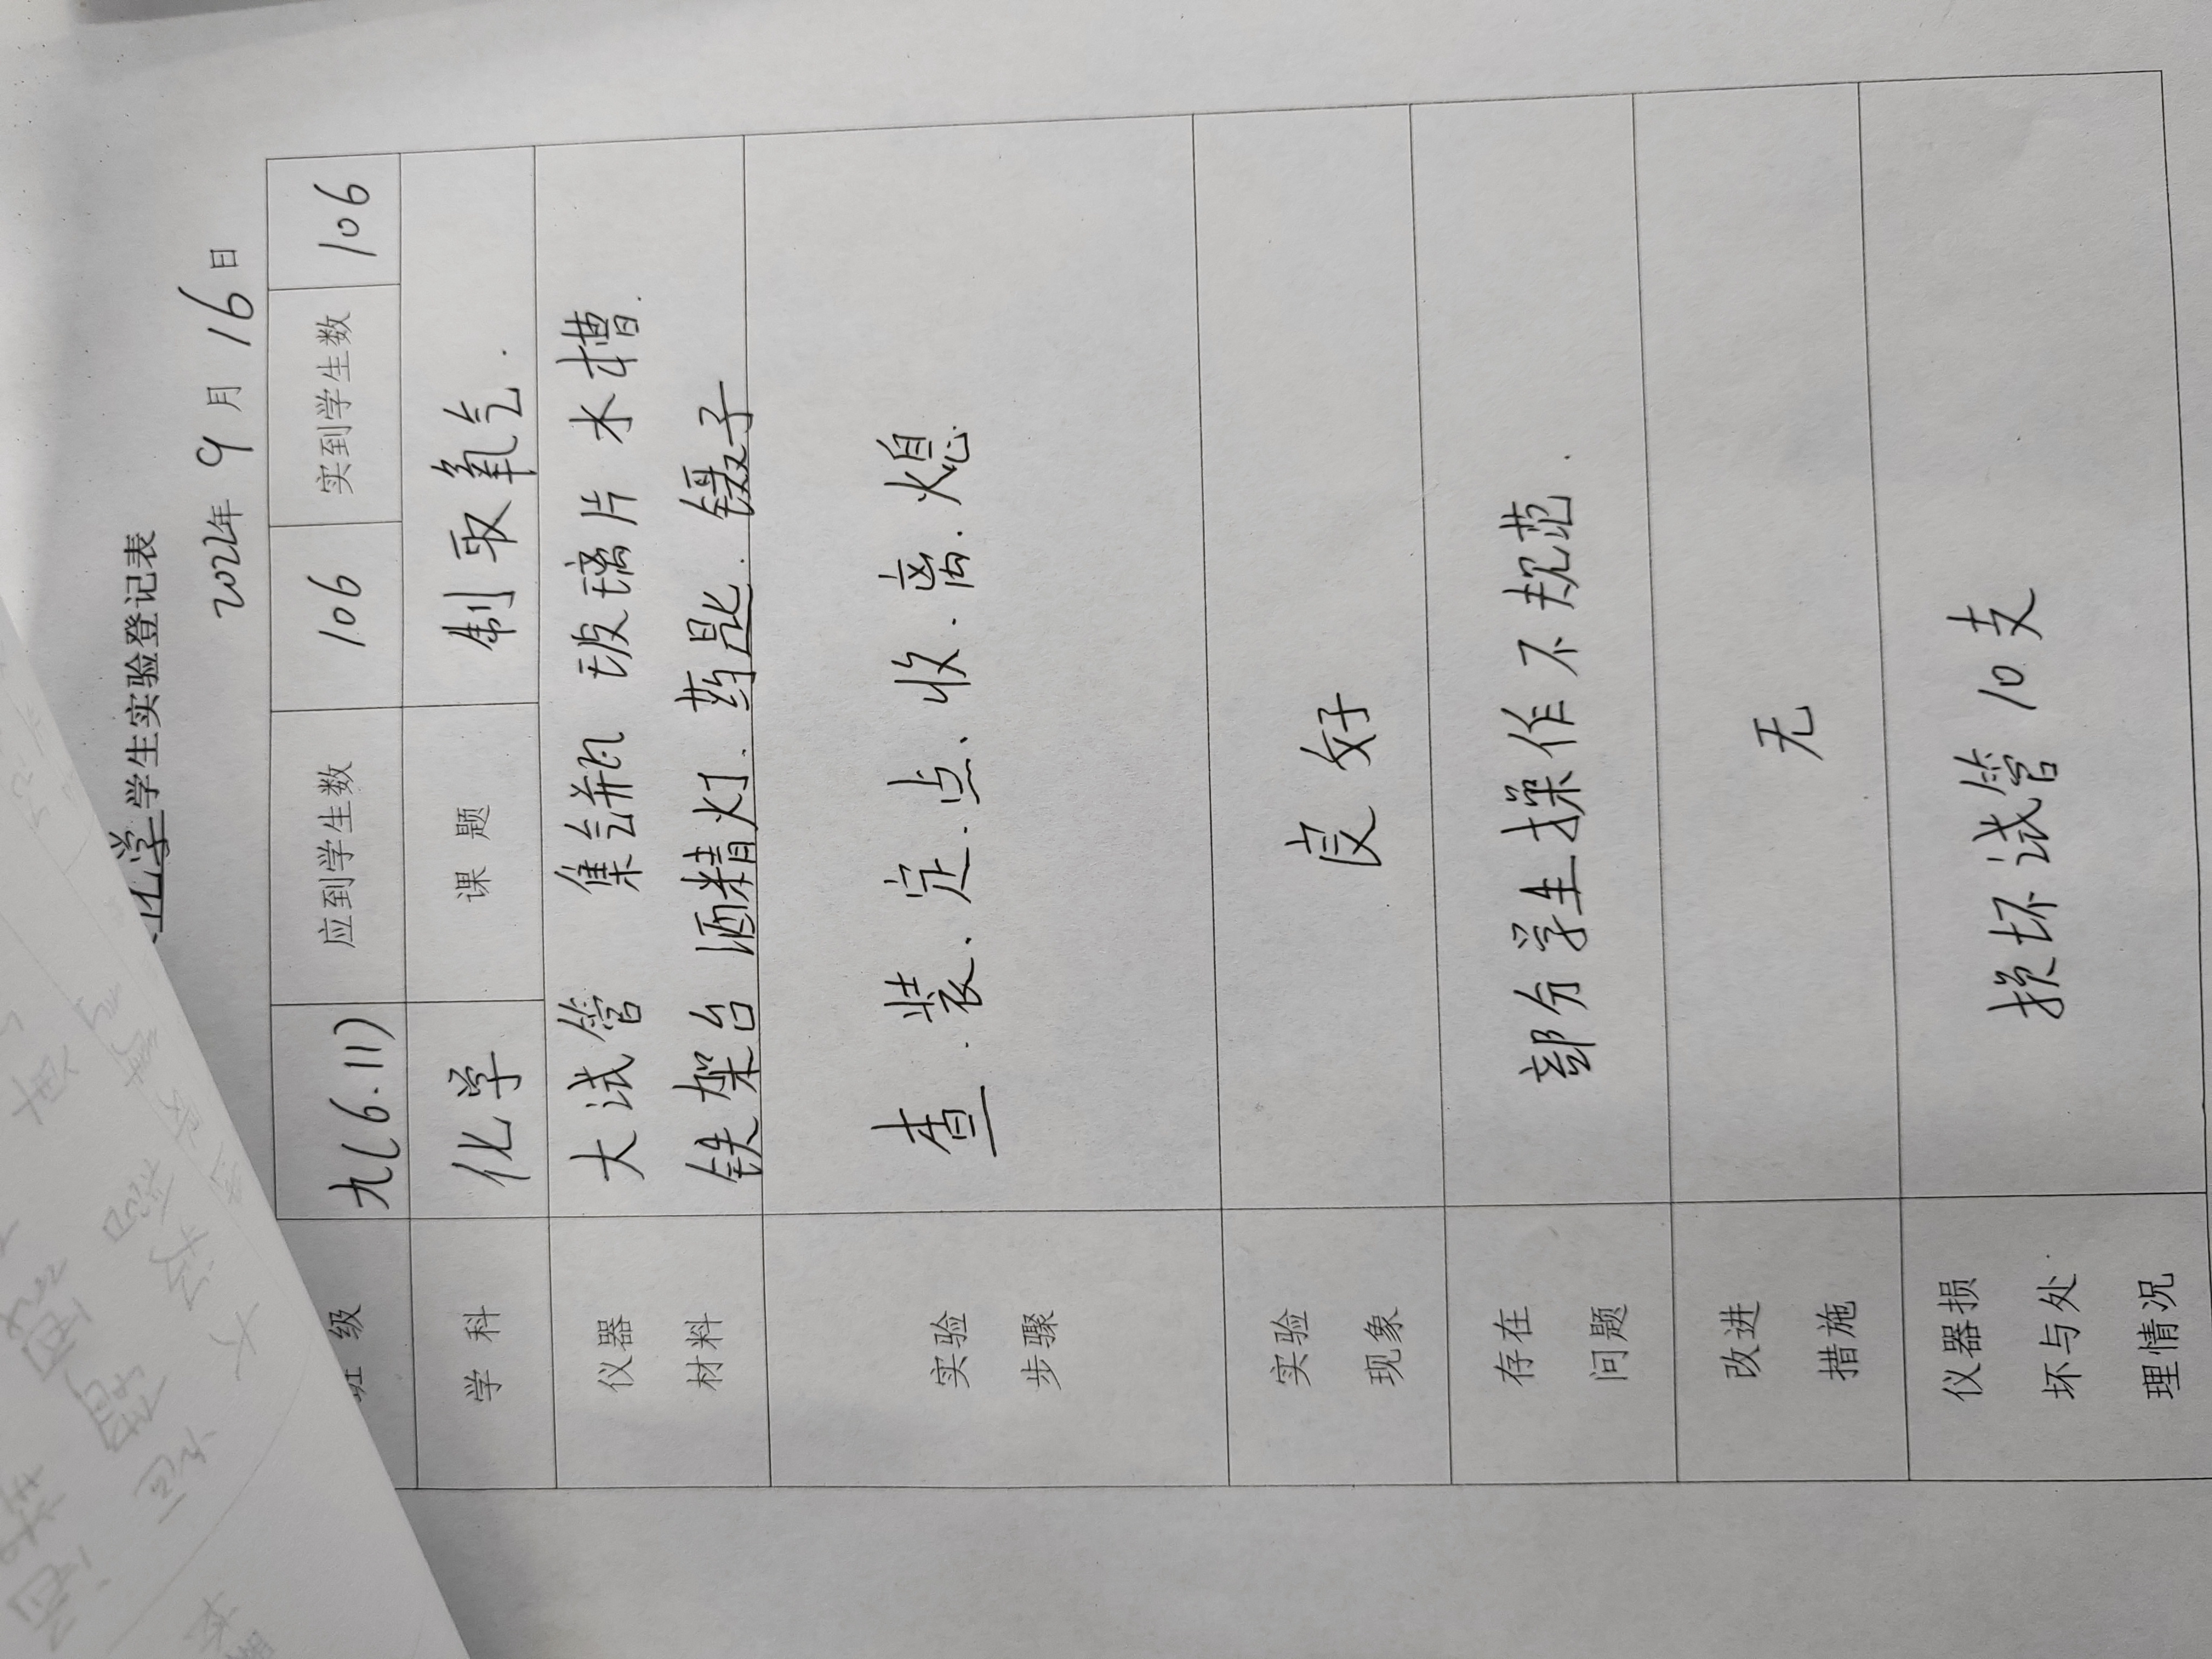 化学学生实验登记表
2022年 9 月 16日
班 级 九(6.11) 应到学生数 106 实到学生数 106
学 科 化学 课 题 制取氧气.
仪器 大试管 集气瓶 玻璃片 水槽.
材料 铁架台 酒精灯. 药匙. 镊子
实验 查.装、定.点、收.离.熄
步骤
实验 良好
现象
存在 部分学生操作不规范.
问题
改进 无
措施
仪器损 损坏试管10支
坏与处
理情况